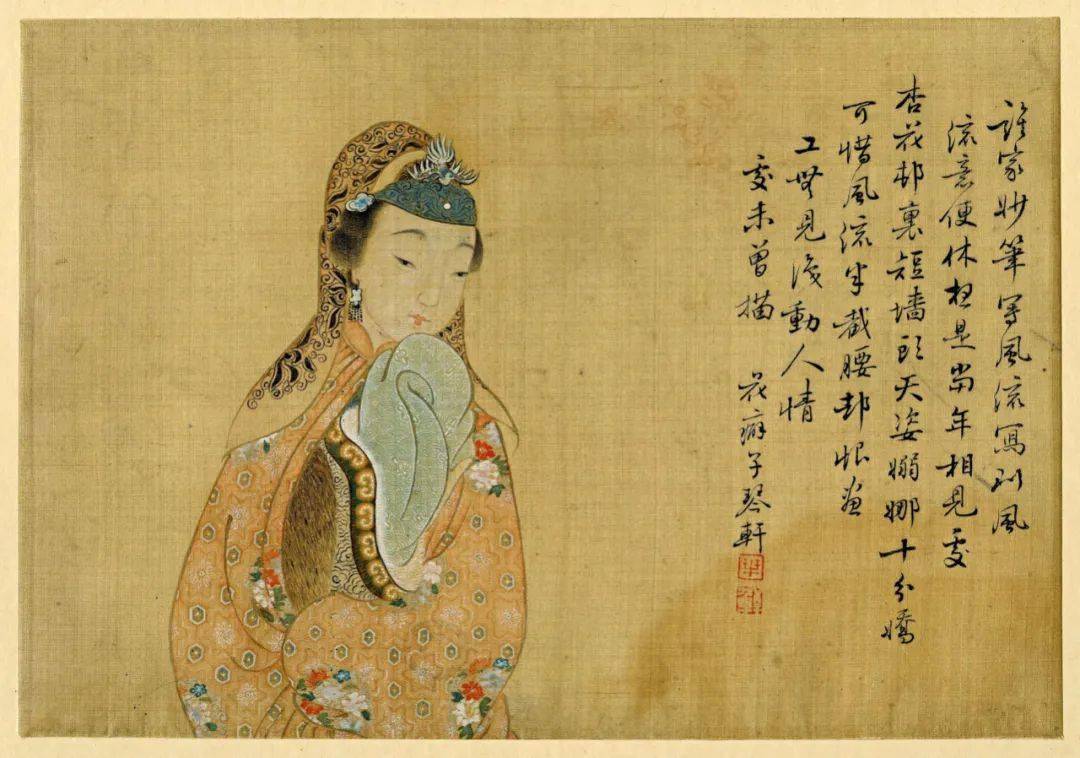 誰家妙筆写風流寫到風
流意便休想是當年相見處
杏花邨裏短墻頭天姿嫋娜十分嬌
可惜風流半截腰却恨畫
工無見動人情
處未曾描 花癖子琴軒